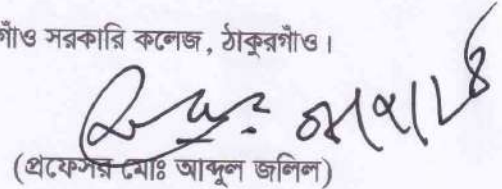 গাঁও সরকারি কলেজ, ঠাকুরগাঁও।
(প্রফেসর মোঃ আব্দুল জলিল)